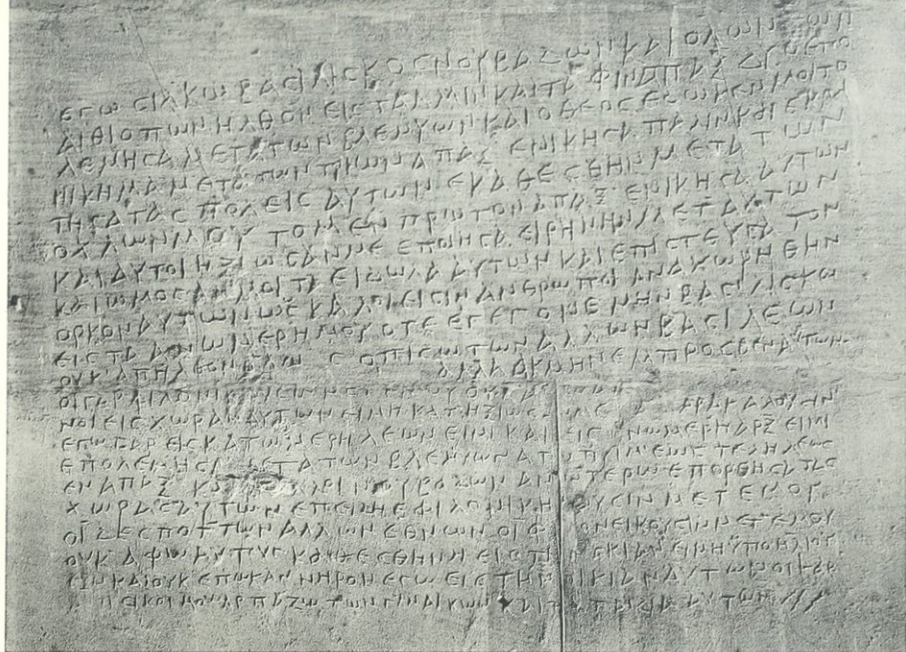 ΕΓⲰ ϹΙΛΚⲰ ΒΑϹΙΛΙϹΚΟϹ ΝΟΥΒΑΔⲰΝ ΚΑΙ ΟΛⲰΝ ΤⲰΝ
ΑΙΘΙΟΠⲰΝ ΗΛΘΟΝ ΕΙϹ ΤΑΛΜΙΝ ΚΑΙ ΤΑΦΙΝ ΑΠΑΞ ΔΥΟ ΕΠΟ
ΛΕΜΗϹΑ ΜΕΤΑ ΤⲰΝ ΒΛΕΜΥⲰΝ ΚΑΙ Ο ΘΕΟϹ ΕΔⲰΚΕΝ ΜΟΙ ΤΟ
ΝΙΚΗΜΑ ΜΕΤΑ ΤⲰΝ ΤΡΙⲰΝ ΑΠΑΞ ΕΝΙΚΗϹΑ ΠΑΛΙΝ ΚΑΙ ΕΚΡΑ
ΤΗϹΑ ΤΑϹ ΠΟΛΕΙϹ ΑΥΤⲰΝ ΕΚΑΘΕϹΘΗΝ ΜΕΤΑ ΤⲰΝ
ΟΧΛⲰΝ ΜΟΥ ΤΟ ΜΕΝ ΠΡⲰΤΟΝ ΑΠΑΞ ΕΝΙΚΗϹΑ ΑΥΤⲰΝ
ΚΑΙ ΑΥΤΟΙ ΗΞΙⲰϹΑΝ ΜΕ ΕΠΟΙΗϹΑ ΕΙΡΗΝΗΝ ΜΕΤ ΑΥΤⲰΝ
ΚΑΙ ⲰΜΟϹΑΝ ΜΟΙ ΤΑ ΕΙΔⲰΛΑ ΑΥΤⲰΝ ΚΑΙ ΕΠΙϹΤΕΥϹΑ ΤΟΝ
ΟΡΚΟΝ ΑΥΤⲰΝ ⲰϹ ΚΑΛΟΙ ΕΙϹΙΝ ΑΝΘΡⲰΠΟΙ ΑΝΑΧⲰΡΗΘΗΝ
ΕΙϹ ΤΑ ΑΝⲰ ΜΕΡΗ ΜΟΥ ΟΤΕ ΕΓΕΓΟΝΕΜΗΝ ΒΑϹΙΛΙϹΚΟϹ
ΟΥΚ ΑΠΗΛΘΟΝ ΟΠΙϹⲰ ΤⲰΝ ΑΛΛⲰΝ ΒΑϹΙΛΕⲰΝ
ΑΛΛΑ ΑΚΜΗΝ ΕΜΠΡΟϹΘΕΝ ΑΥΤⲰΝ
ΟΙ ΓΑΡ ΦΙΛΟΝΙΚΟΥϹΙΝ ΜΕΤ ΕΜΟΥ ΟΥΚ
ΝΟΙ ΕΙϹ ΧⲰΡΑΝ ΑΥΤⲰΝ ΕΙ ΜΗ ΚΑΤΗΞΙⲰϹΑΝ ΜΕ ΠΑΡΑΚΑΛΟΥϹΙΝ
ΕΓⲰ ΓΑΡ ΕΙϹ ΚΑΤⲰ ΜΕΡΗ ΛΕⲰΝ ΕΙΜΙ ΚΑΙ ΕΙϹ ΑΝⲰ ΜΕΡΗ ΑΡΞ ΕΙΜΙ
ΕΠΟΛΕΜΗϹΑ ΜΕΤΑ ΤⲰΝ ΒΛΕΜΥⲰΝ ΑΠΟ ΠΡΙΜΕⲰϹ ΤΕΛΗΛΕⲰϹ
ΕΝ ΑΠΑΞ ΚΑΙ ΝΟΥΒΑΔⲰΝ ΑΝⲰΤΕΡⲰ ΕΠΟΡΘΗϹΑ ΤΑϹ
ΧⲰΡΑϹ ΑΥΤⲰΝ ΕΠΕΙΔΗ ΕΦΙΛΟΝΙΚΗϹΟΥϹΙΝ ΜΕΤ ΕΜΟΥ
ΟΙ ΔΕϹΠΟΤ ΤⲰΝ ΑΛΛⲰΝ ΕΘΝⲰΝ ΟΙ ΦΙΛΟΝΕΙΚΟΥϹΙΝ ΜΕΤ ΕΜΟΥ
ΟΥΚ ΑΦⲰ ΑΥΤΟΥϹ ΚΑΘΕϹΘΗΝΑΙ ΕΙϹ ΤΗΝ ϹΚΙΑΝ ΕΙ ΜΗ ΥΠΟ ΗΛΙΟΥ
ΕΞⲰ ΚΑΙ ΟΥΚ ΕΠⲰΚΑΝ ΝΗΡΟΝ ΕϹⲰ ΕΙϹ ΤΗΝ ΟΙΚΙΑΝ ΑΥΤⲰΝ ΟΙ ΓΑΡ
ΑΝΤΙΔΙΚΟΙ ΜΟΥ ΑΡΠΑΖⲰ ΤⲰΝ ΓΥΝΑΙΚⲰΝ ΚΑΙ ΤΑ ΠΑΙΔΙΑ ΑΥΤⲰΝ